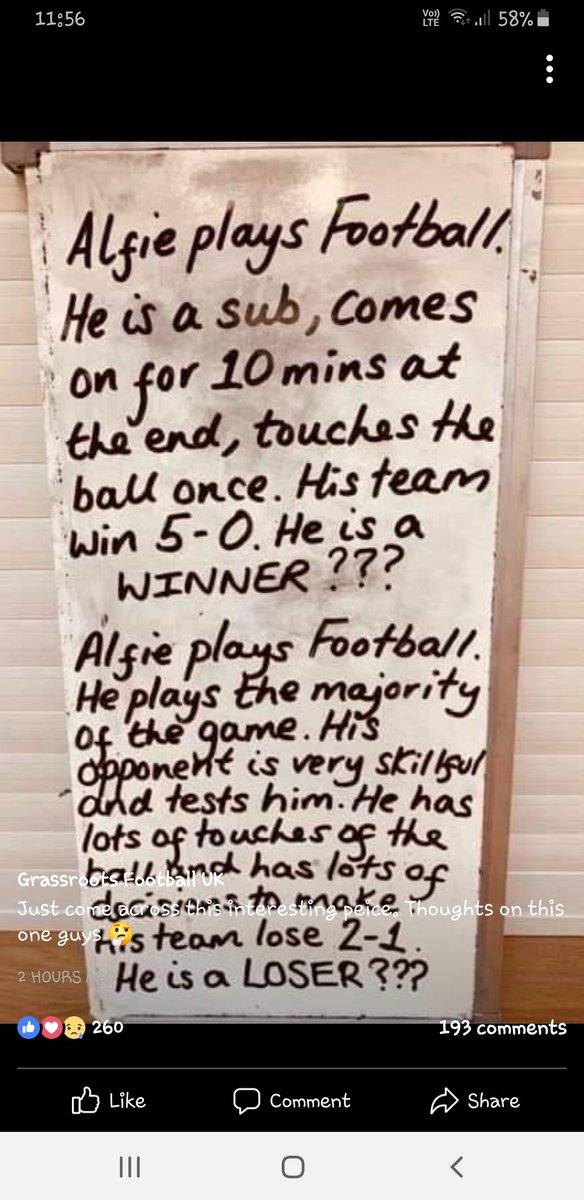 11:56
Vo))
LTE
58%
Alfie plays Football.
He is a sub, comes
on for 10 mins at
the end, touches the
ball once. His team
win 5-0. He is a
WINNER ???
Alfie plays Football.
He plays the majority
of the game. His
opponent is very skillful
and tests him. He has
lots of touches of the
ball and has lots of
to make.
His team lose 2-1.
He is a LOSER???
Grassroots Football UK
Just come across this interesting peice. Thoughts on this
one guys 🤔
2 HOURS
260
193 comments
Like
Comment
Share